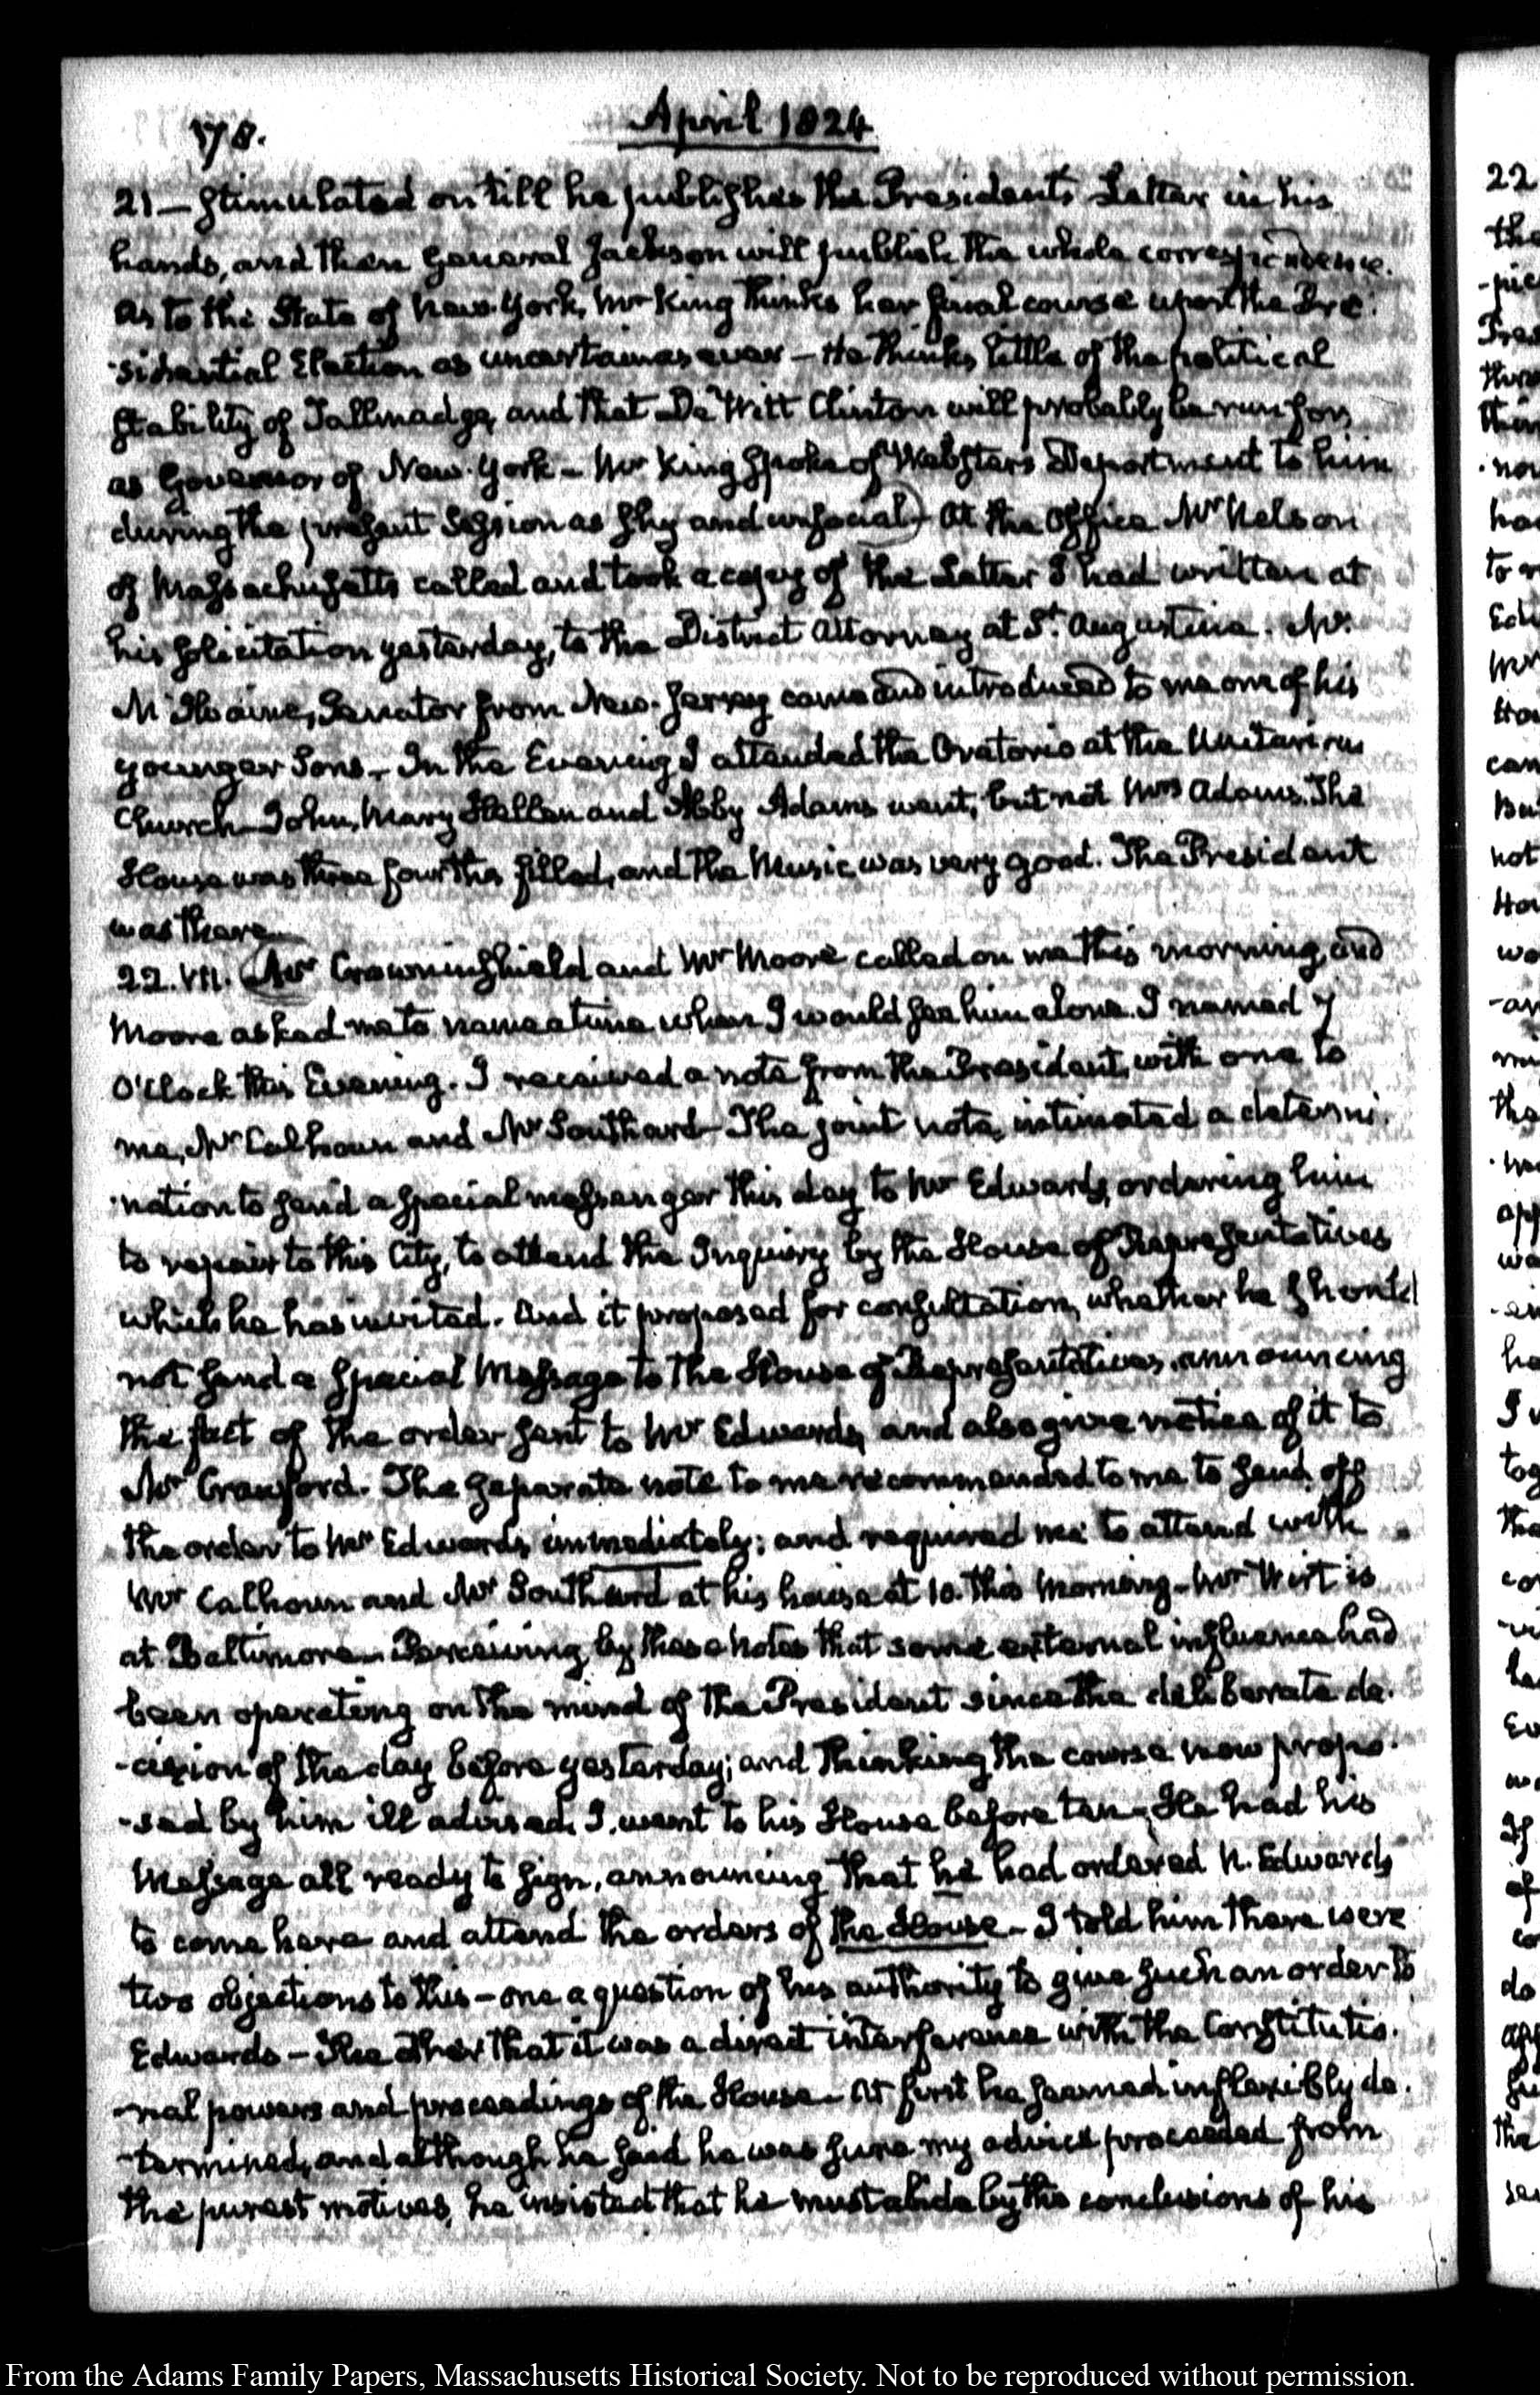 78.
April 1824
21 — stimulated on till he publishes the President's Letter in his
hands, and then General Jackson will publish the whole correspondence.
As to the State of New-York, Mr King thinks her final course upon the Pre-
-sidential Election as uncertain as ever — He thinks little of the political
stability of Tallmadge, and that De Witt Clinton will probably be run for,
as Governor of New-York — Mr King spoke of Websters Deportment to him
during the present Session as shy and unsocial) — At the Office Mr Nelson
of Massachusetts called and took a copy of the Letter I had written at
his solicitation yesterday, to the District Attorney at St. Augustine. Mr.
McIlvaine, Senator from New-Jersey came and introduced to me one of his
younger Sons — In the Evening I attended the Oratorio at the Unitarian
Church — John, Mary Hellen and Abby Adams went, but not Mrs Adams. The
House was three fourths filled, and the Music was very good. The President
was there.
22. VII. (Mr Crowninshield and Mr Moore called on me this morning, and
Moore asked me to name a time when I would see him alone. I named 7
O'Clock this Evening. I received a note from the President, with one to
me, Mr Calhoun and Mr Southard — The joint note, intimated a determi-
-nation to send a special messenger this day to Mr Edwards, ordering him
to repair to this City, to attend the Inquiry by the House of Representatives
which he has invited. And it proposed for consultation, whether he should
not send a special Message to the House of Representatives, announcing
the fact of the order sent to Mr Edwards, and also give notice of it to
Mr Crawford. The separate note to me recommended to me to send off
the order to Mr Edwards immediately; and required me to attend with
Mr Calhoun and Mr Southard at his house at 10. this Morning — Mr Wirt is
at Baltimore — Perceiving by these Notes that some external influence had
been operating on the mind of the President since the deliberate de-
-cision of the day before yesterday; and thinking the course now propo-
-sed by him ill advised, I went to his House before ten — He had his
Message all ready to sign, announcing that he had ordered N. Edwards
to come here and attend the orders of the House — I told him there were
two objections to this — one a question of his authority to give such an order to
Edwards — The other that it was a direct interference with the Constitutio-
-nal powers and proceedings of the House — At first he seemed inflexibly de-
-termined, and although he said he was sure my advice proceeded from
the purest motives, he insisted that he must abide by the conclusions of his
From the Adams Family Papers, Massachusetts Historical Society. Not to be reproduced without permission.